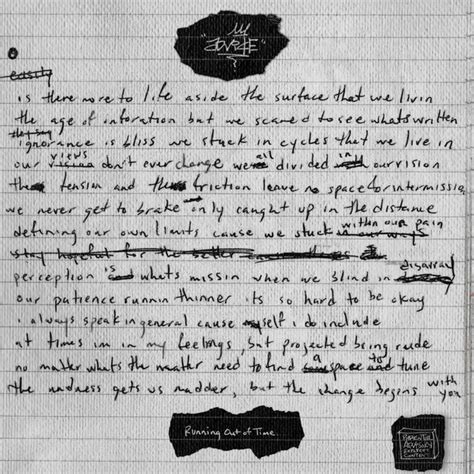 "JOVSEE"
easily
is there more to life aside the surface that we livin
the age of inforation but we scared to see whats written
they say
ignorance is bliss we stuck in cycles that we live in
our vision views don't ever change we all divided in our vision
the tension and the friction leave no space for intermissio
we never get to brake and only caught up in the distance
defining our own limits cause we stuck in our ways within our pain
stay hopeful for the better
perception is whats missin when we blind in disarray
our patience runnin thinner its so hard to be okay
i always speak in general cause my self i do include
at times im in my feelings, but projected being rude
no matter whats the matter need to find a space to tune
the madness gets us madder, but the change begins with you
Running Out of Time.
PARENTAL
ADVISORY
EXPLICIT
CONTENT